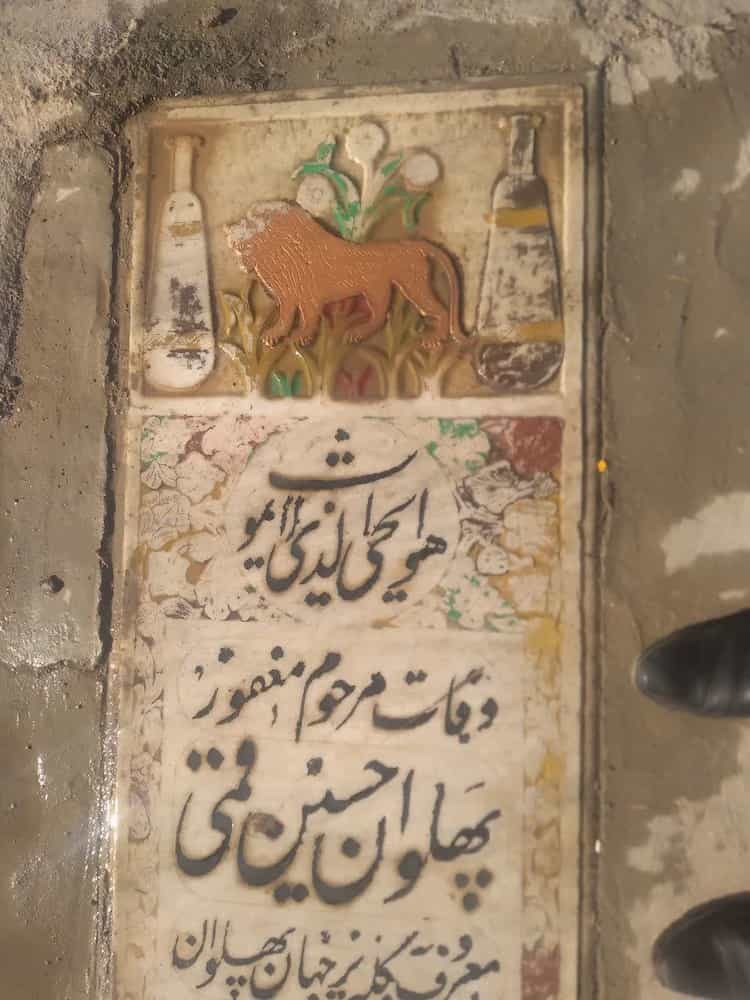 هو الحی الذی لا یموت
وفات مرحوم مغفور
پهلوان حسین قمی
معروف گلزر جهان پهلوان